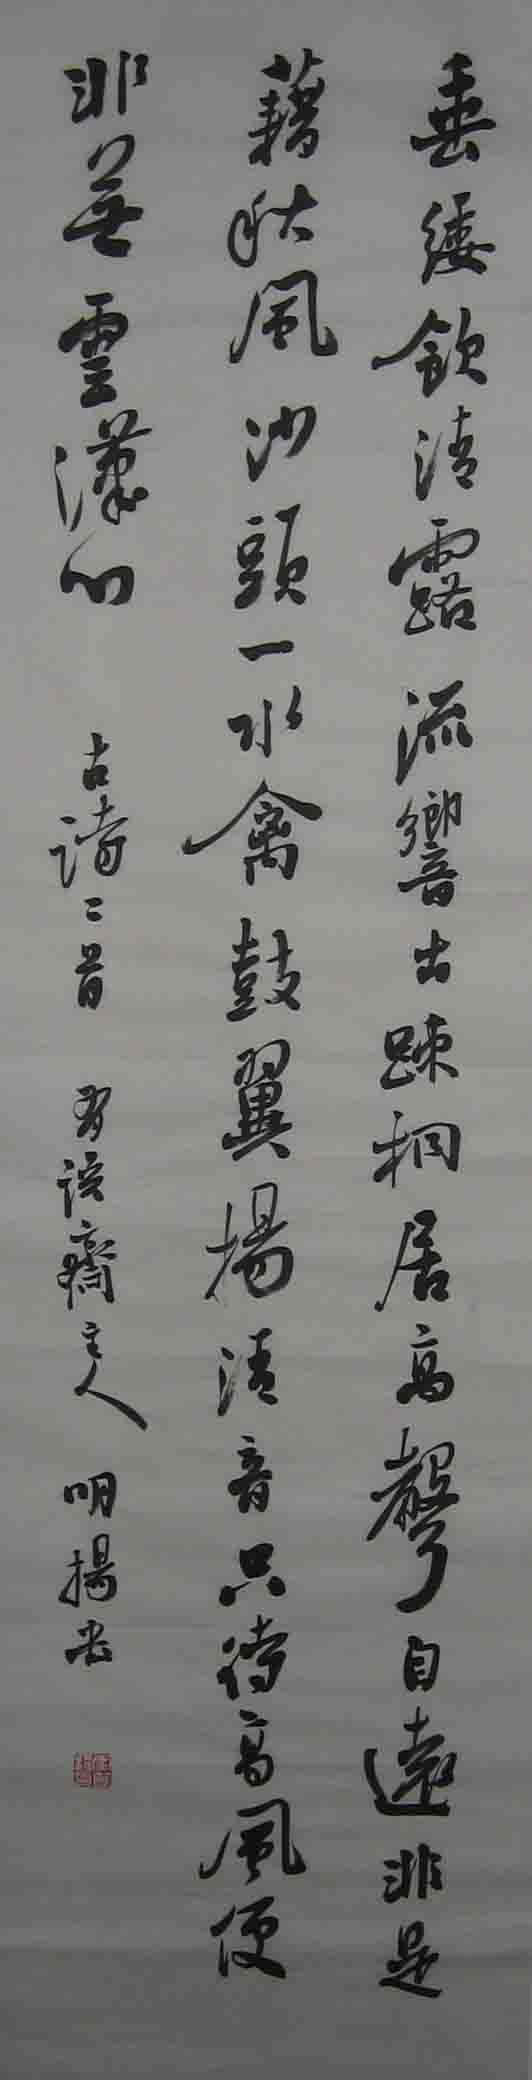 垂緌飲清露流響出疎桐居高聲自遠非是
藉秋風沙頭一水禽鼓翼揚清音只待高風便
非無雲漢心 古詩二首 有誤齋主人 明揚書